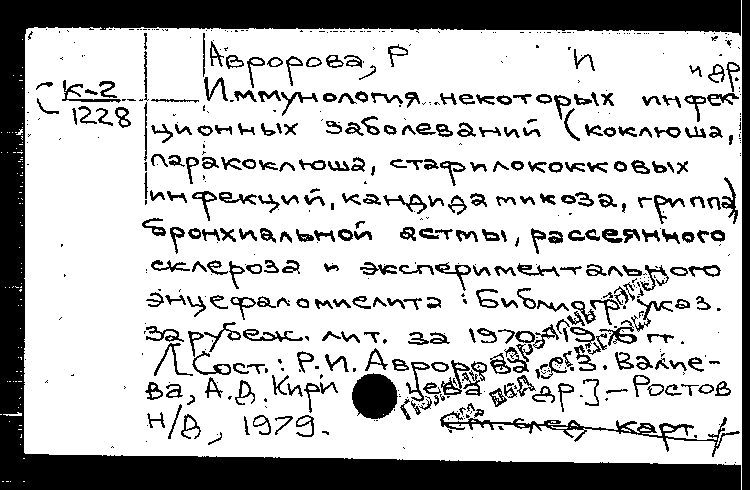 Авророва, Р И и др.
К-2
1228
Иммунология некоторых инфек-
ционных заболеваний (коклюша,
паракоклюша, стафилококковых
инфекций, кандидамикоза, гриппа),
бронхиальной астмы, рассеянного
склероза и экспериментального
энцефаломиелита : Библиогр. указ.
зарубеж. лит. за 1970-1976 гг.
/[Сост.: Р.И. Авророва, З. Валие-
ва, А.Д. Кири цева др.].- Ростов
н/Д, 1979.
См. след карт.
Полный перечень
см. под